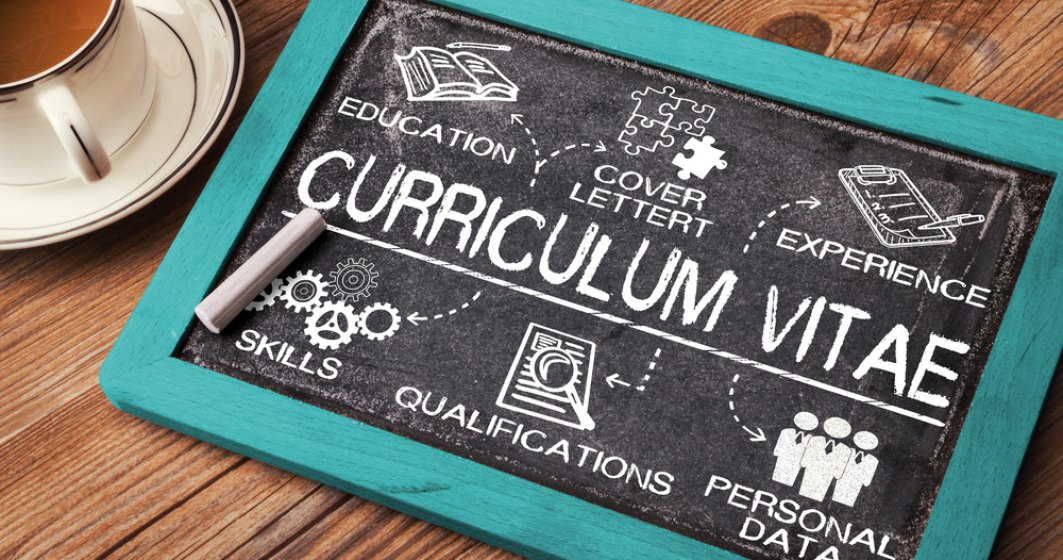 EDUCATION
COVER
LETTERT
EXPERIENCE
CURRICULUM VITAE
SKILLS
QUALIFICATIONS
PERSONAL
DATA